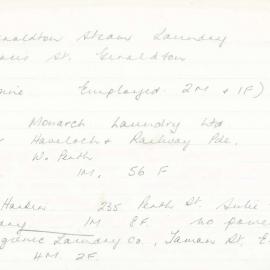 eraldton Steam Laundry
St. Geraldton
Employed 2M + 1F)
Monarch Laundry Ltd
Havelock & Railway Pde.
W. Perth
1M. 56 F
Harken 235 Perth St. Subi
1M 8F no power
gienic Laundry Co., Taman St. E
4M 2F.